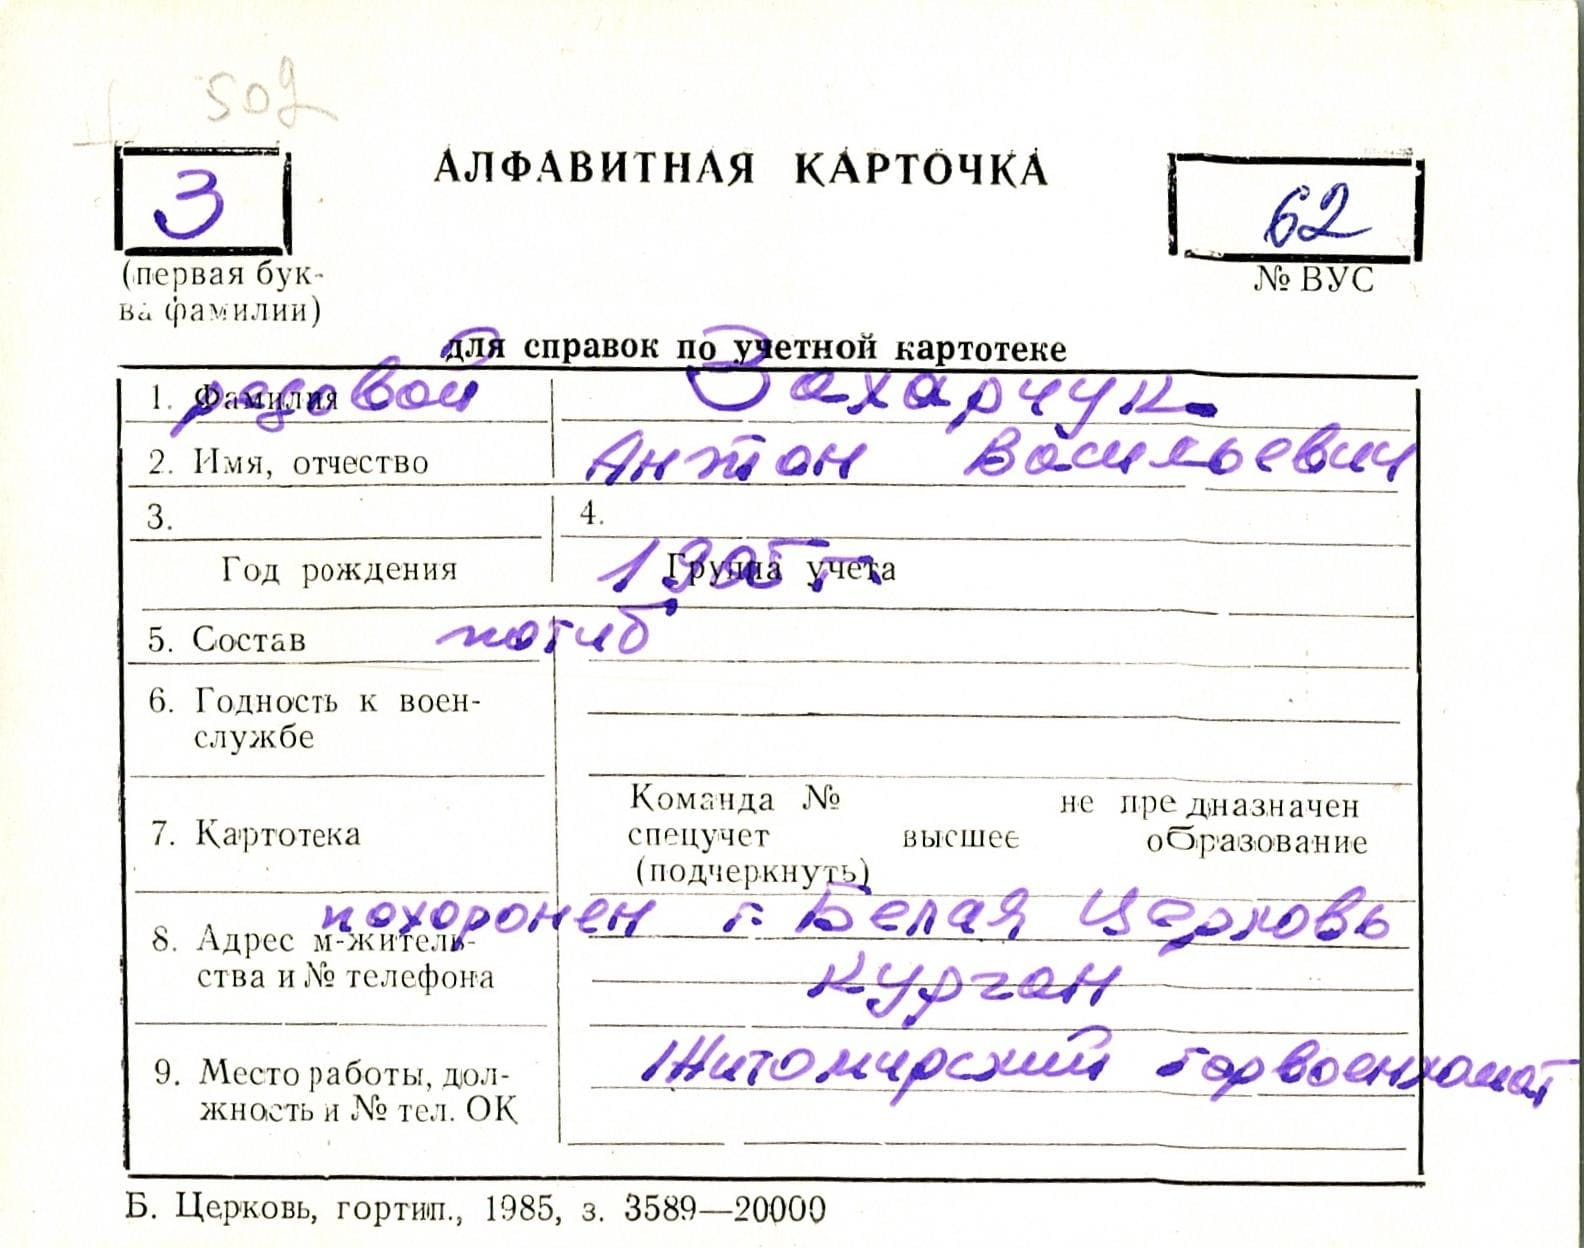 502
З
АЛФАВИТНАЯ КАРТОЧКА
62
(первая бук-
ва фамилии)
№ ВУС
для справок по учетной картотеке
1. Фамилия рядовой Захарчук
2. Имя, отчество Антон Васильевич
3. 4.
Год рождения 1905 г. Группа учета
5. Состав погиб
6. Годность к воен-
службе
Команда № не предназначен
7. Картотека спецучет высшее образование
(подчеркнуть)
похоронен г. Белая Церковь
8. Адрес м-житель-
ства и № телефона Курган
9. Место работы, дол- Житомирский горвоенкомат
жность и № тел. ОК
Б. Церковь, гортип., 1985, з. 3589—20000